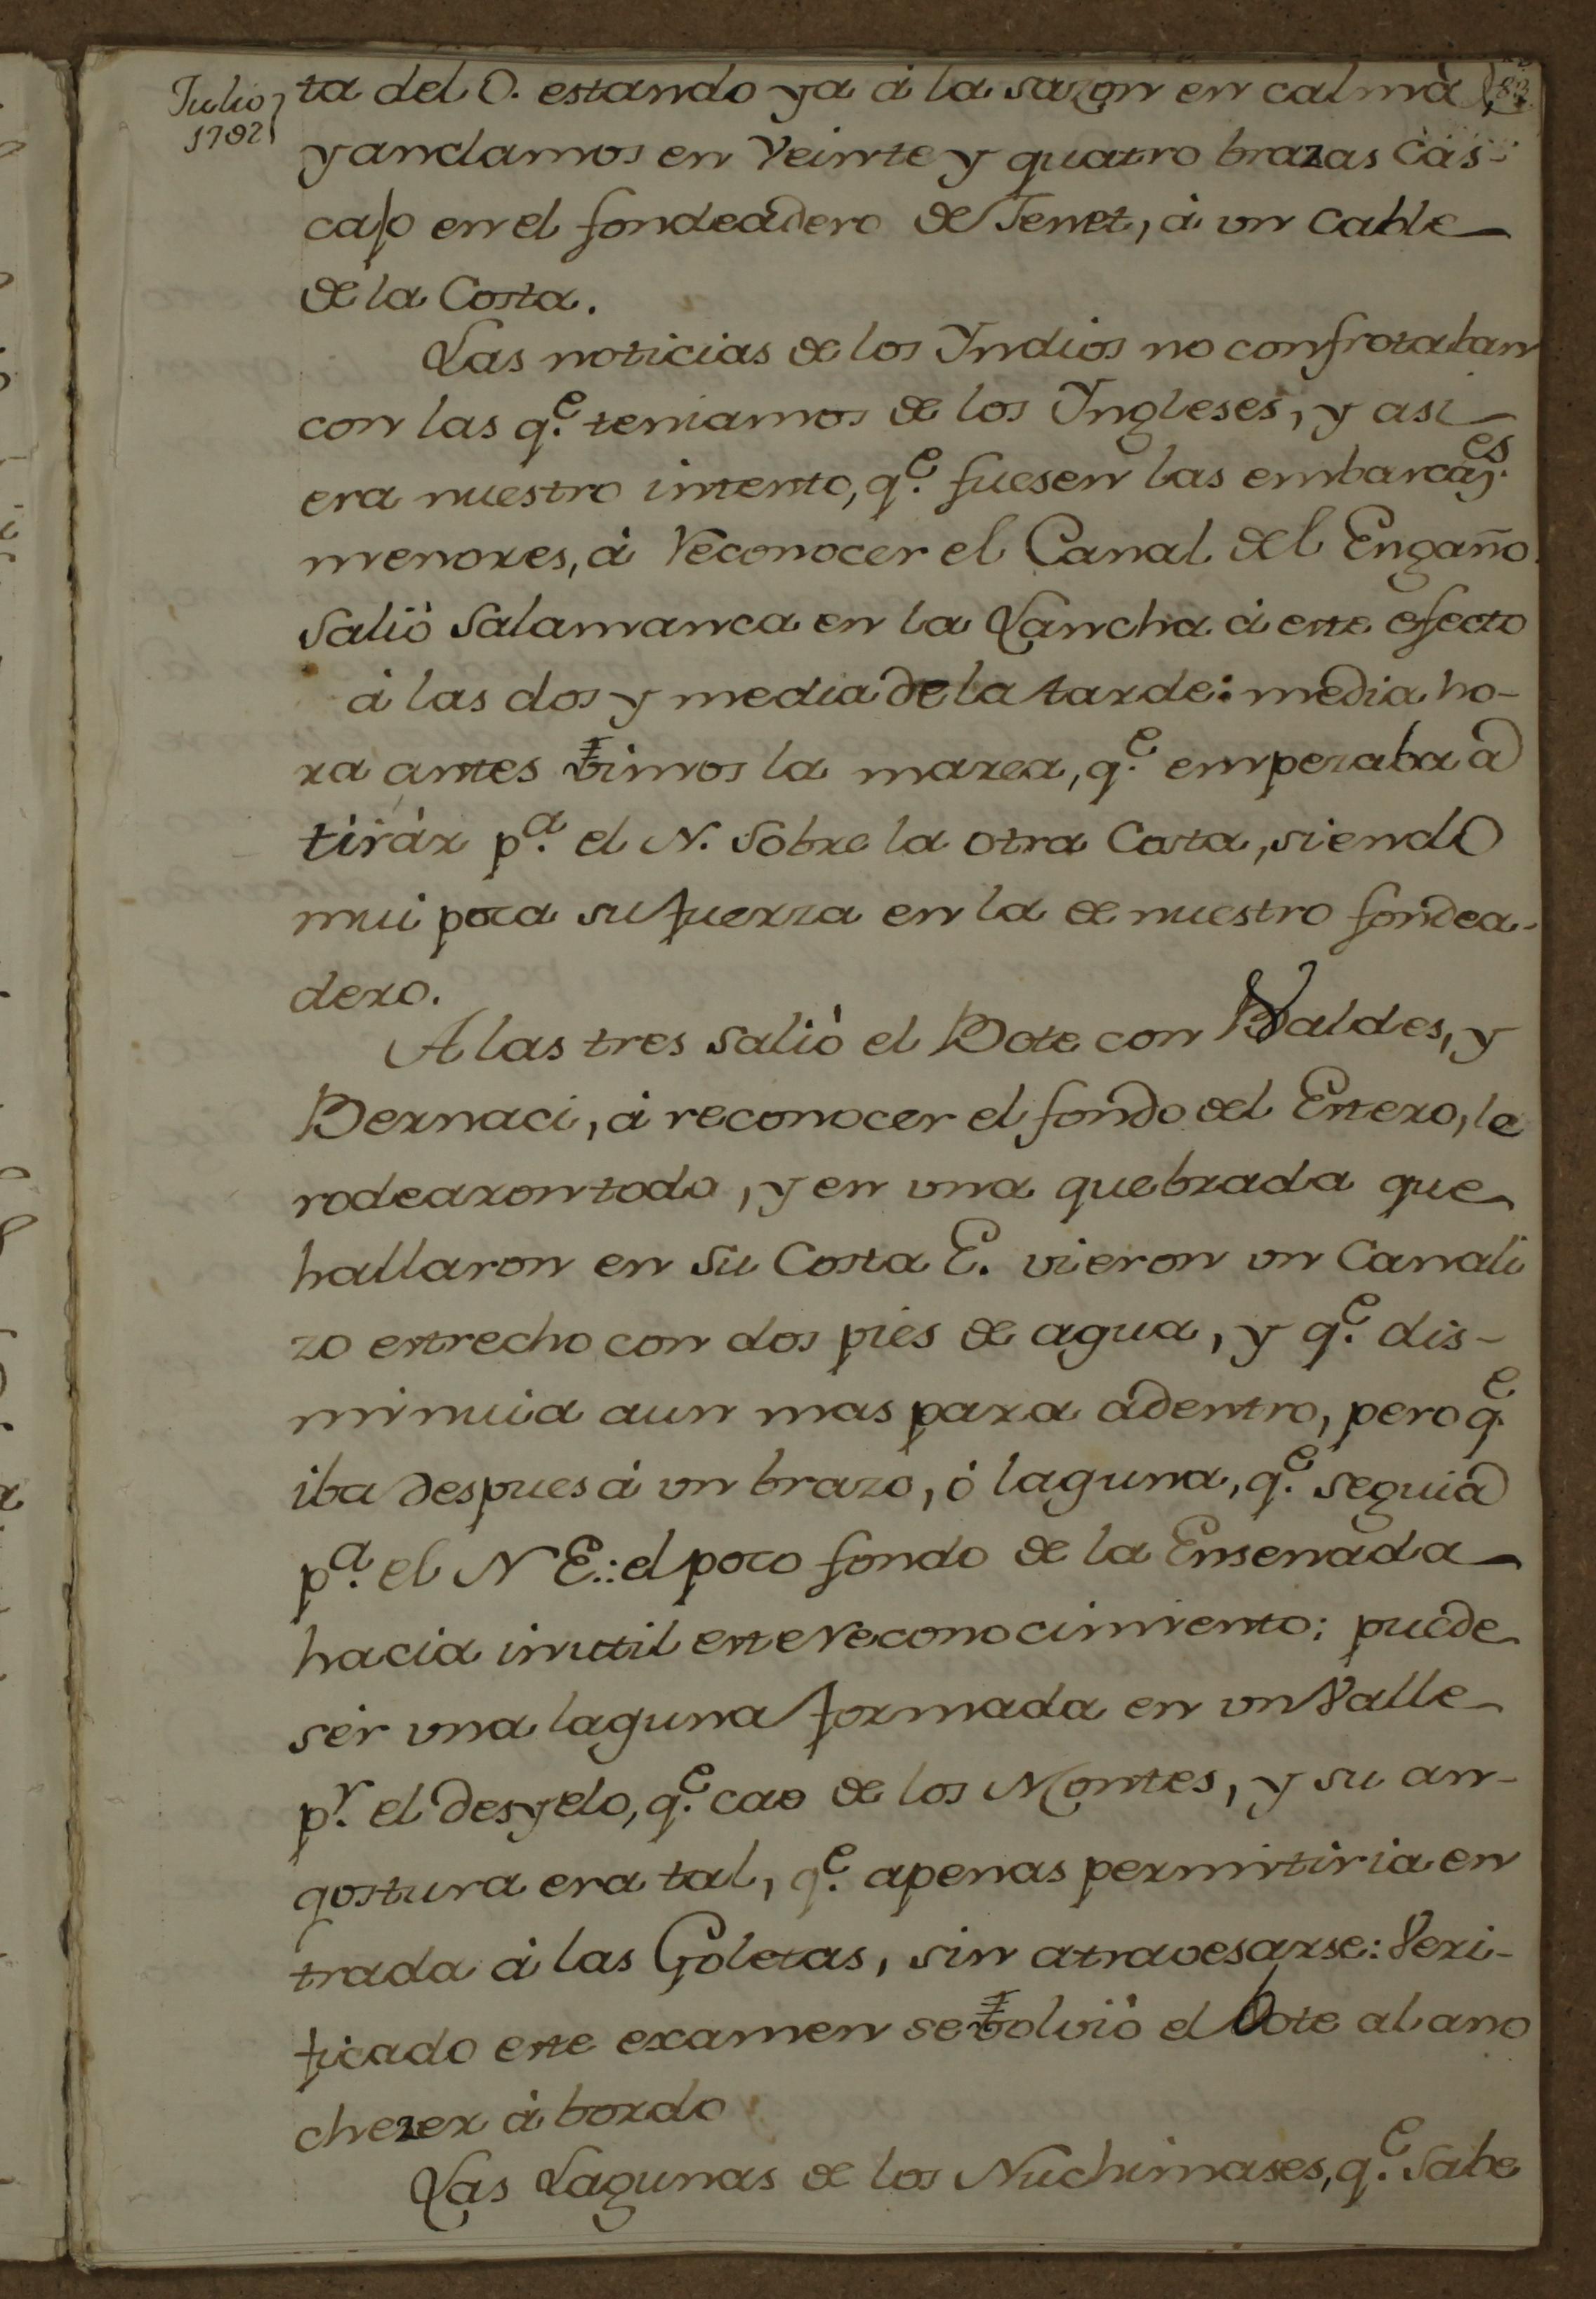 Julio
1792
ta del O. estando ya á la sazon en calma
y anclamos en veinte y quatro brazas Cas-
cajo en el fondeadero de Tenet, á un Cable
de la Costa.
Las noticias de los Yndios no confrotaban
con las q.e teniamos de los Yngleses, y asi
era nuestro intento, q.e fuesen las embarcas.es
menores, á reconocer el Canal del Engaño.
Salió Salamanca en la Lancha á este efecto
á las dos y media de la tarde: media ho-
ra antes vimos la marea, q.e empezaba a
tirár p.a el N. sobre la otra Costa, siendo
mui poca su fuerza en la de nuestro fondea-
dero.
A las tres salió el Bote con Valdes, y
Bernaci, á reconocer el fondo del Estero, le
rodearon todo, y en una quebrada que
hallaron en su Costa E. vieron un Canali
zo estrecho con dos pies de agua, y q.e dis-
minuia aun mas para adentro, pero q.e
iba despues á un brazo, ó laguna, q.e seguia
p.a el N E.: el poco fondo de la Ensenada
hacia inutil este reconocimiento; puede
sér una laguna formada en un Valle
p.r el desyelo, q.e cae de los Montes, y su an-
gostura era tal, q.e apenas permitiria en
trada á las Goletas, sin atravesarse: Veri-
ficado este examen se volvió el bote al ano
chezer á bordo
Las Lagunas de los Nuchimases, q.e Sabe